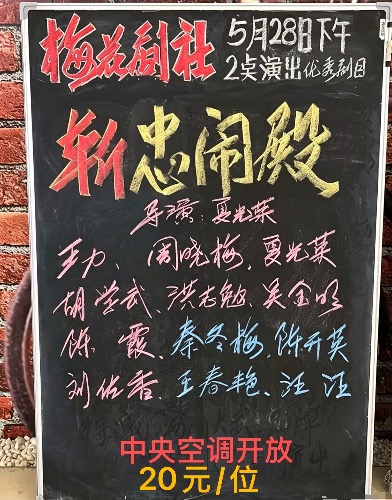 梅花剧社
5月28日下午
2点演出优秀剧目
斩忠闹殿
导演:夏光荣
王力、周晓梅、夏光荣
胡学武、洪志勉、吴金明
陈霞、秦冬梅、陈开英
刘佑香、王春艳、汪汪
中央空调开放
20元/位